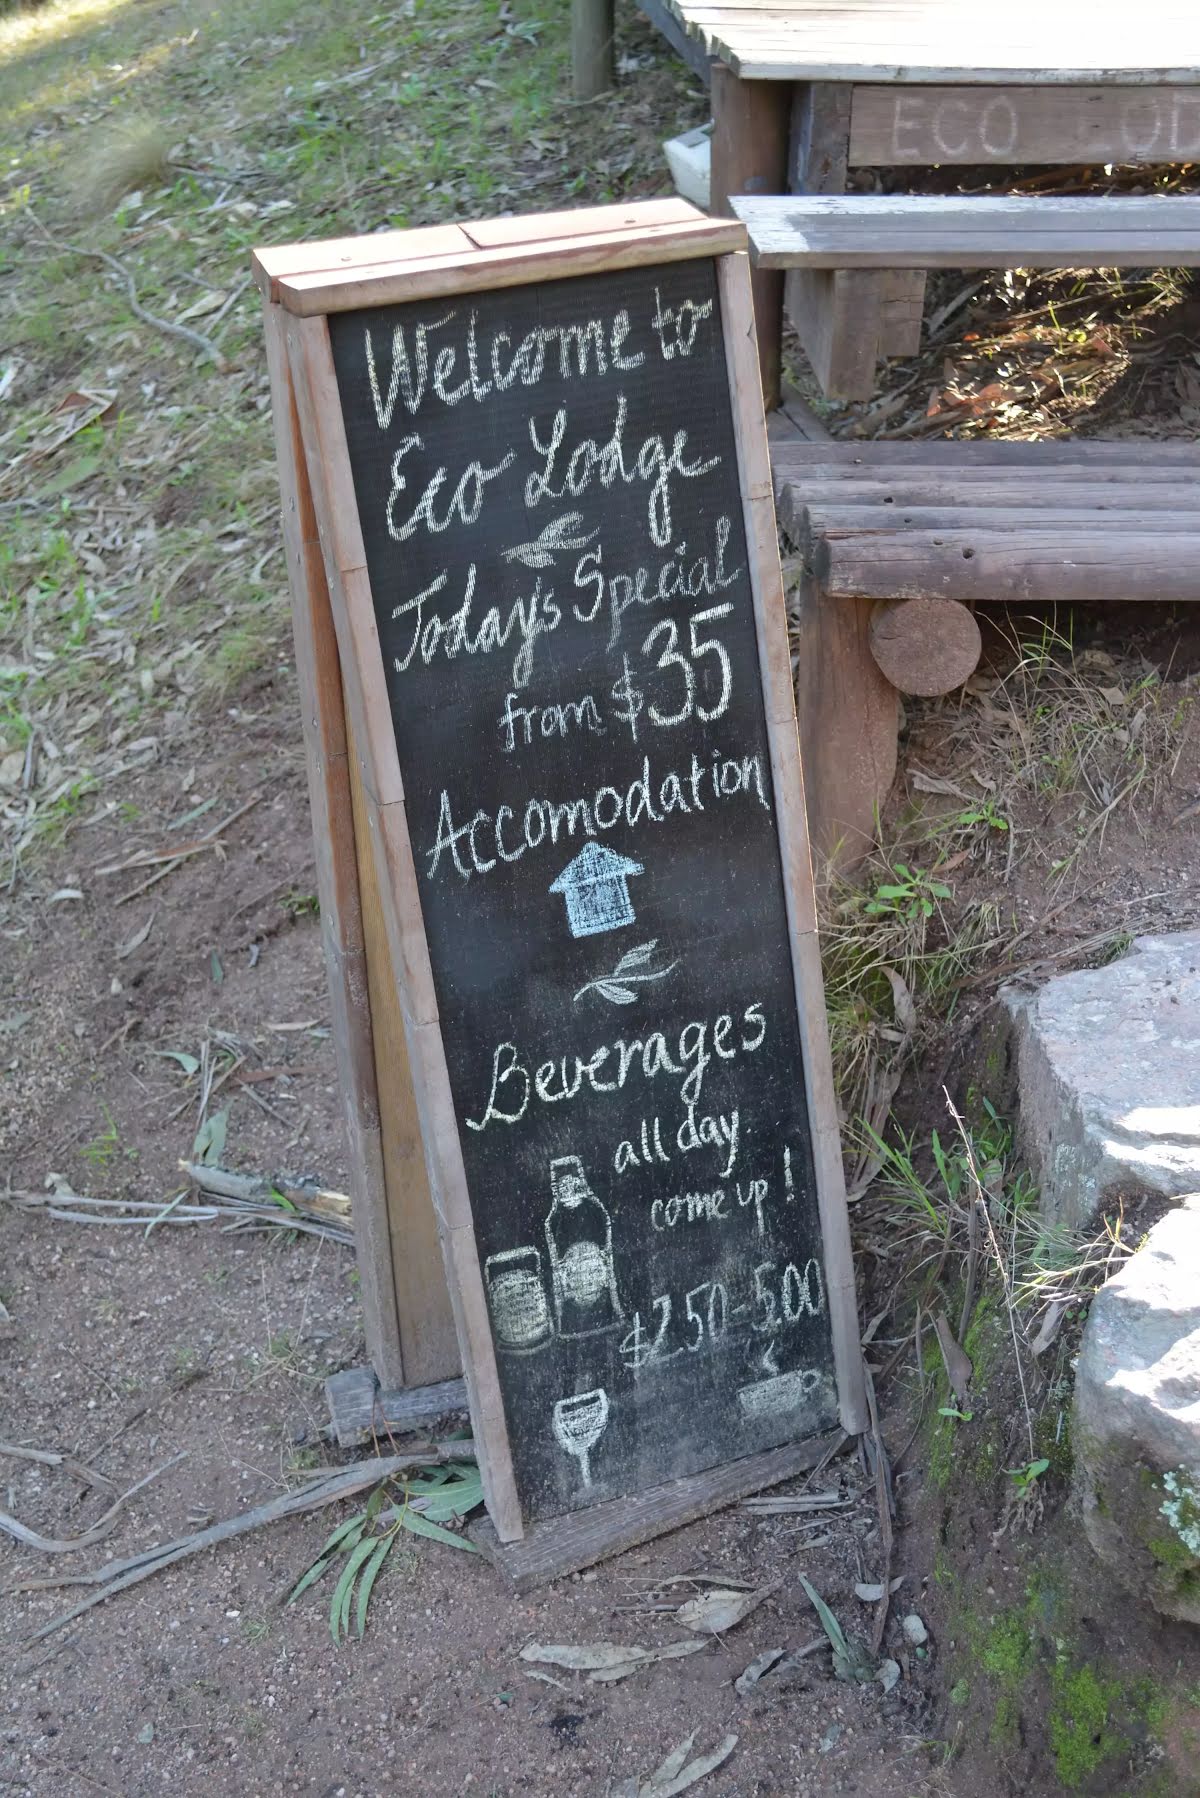 ECO
Welcome to
Eco Lodge
Today's Special
from $35
Accomodation
Beverages
all day
come up!
$2.50-5.00